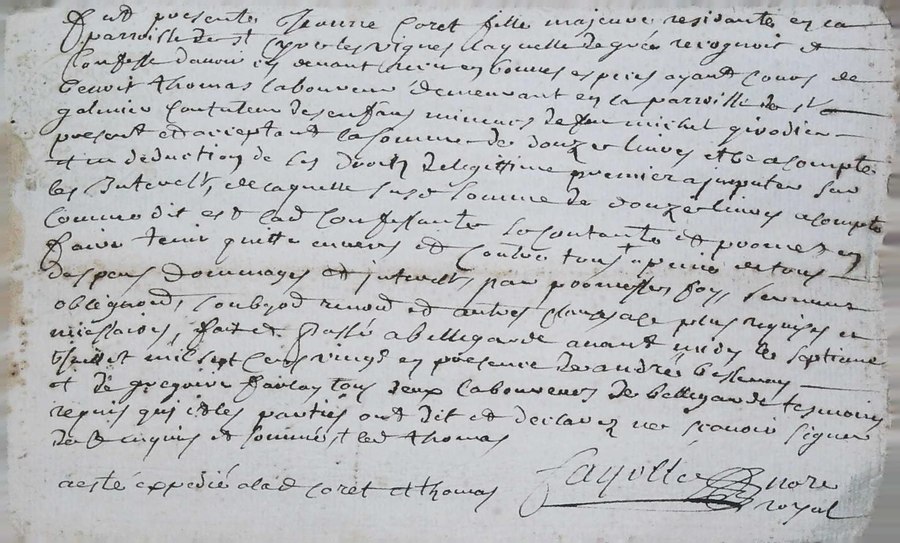 fut presente Jeanne Coret fille majeure residante en la
parroisse de st Cyr les vignes laquelle de gré a recogneit et
Confesse davoir eu devant et en bonnes especes ayant cours de
benoit thomas laboureur demeurant en la parroisse de st
galmier Contuteur des enfans mineurs de feu michel girodier
present et acceptant la somme de douze livres et ce a compte
et en deduction de ses droits de legitime premier a imputer sur
les Interests, de laquelle susd somme de douze livres a compte
Comme dit est lad Confessante se contante et promet en
faire tenir quitte envers et contre tous a peine de tous
despens dommages et interests, par promesses, foy, serment
obligaõns, soubzõns renonõns et autres clauses a ce plus requises et
necessaires, fait et passé a bellegarde avant midy le septieme
Juillet mil sept cens vingt en presence de andré bessenay
et de gregoire farlay tous deux laboureurs de bellegarde tesmoins
requis qui et les parties ont dit et declarez ne sçavoir signer
de ce enquis et sommés led thomas
a esté expedié a lad Coret et thomas
fayolle nore
royal